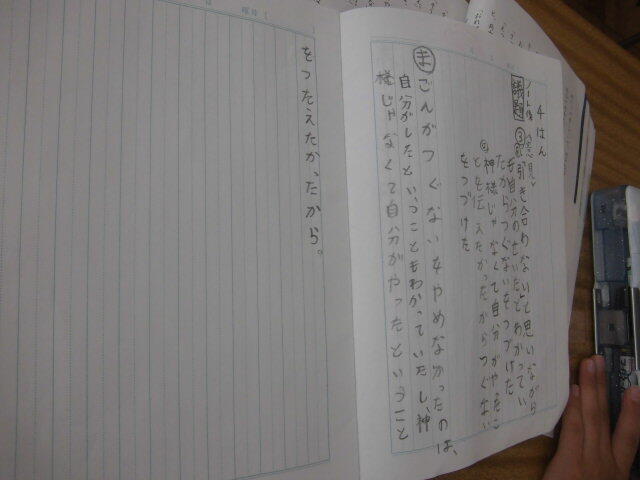 4はん
ノート係(意見)
議題 ③引き合わないと思いながら
も自分のせいだとわかってい
たからつぐないをつづけた
神様じゃなくて自分がやったこ
とを伝えたかったからつぐない
をつづけた
ま ごんがつぐないをやめなかったのは、
自分がしたということもわかっていたし、神
様じゃなくて自分がやったということ
をつたえたかったから。